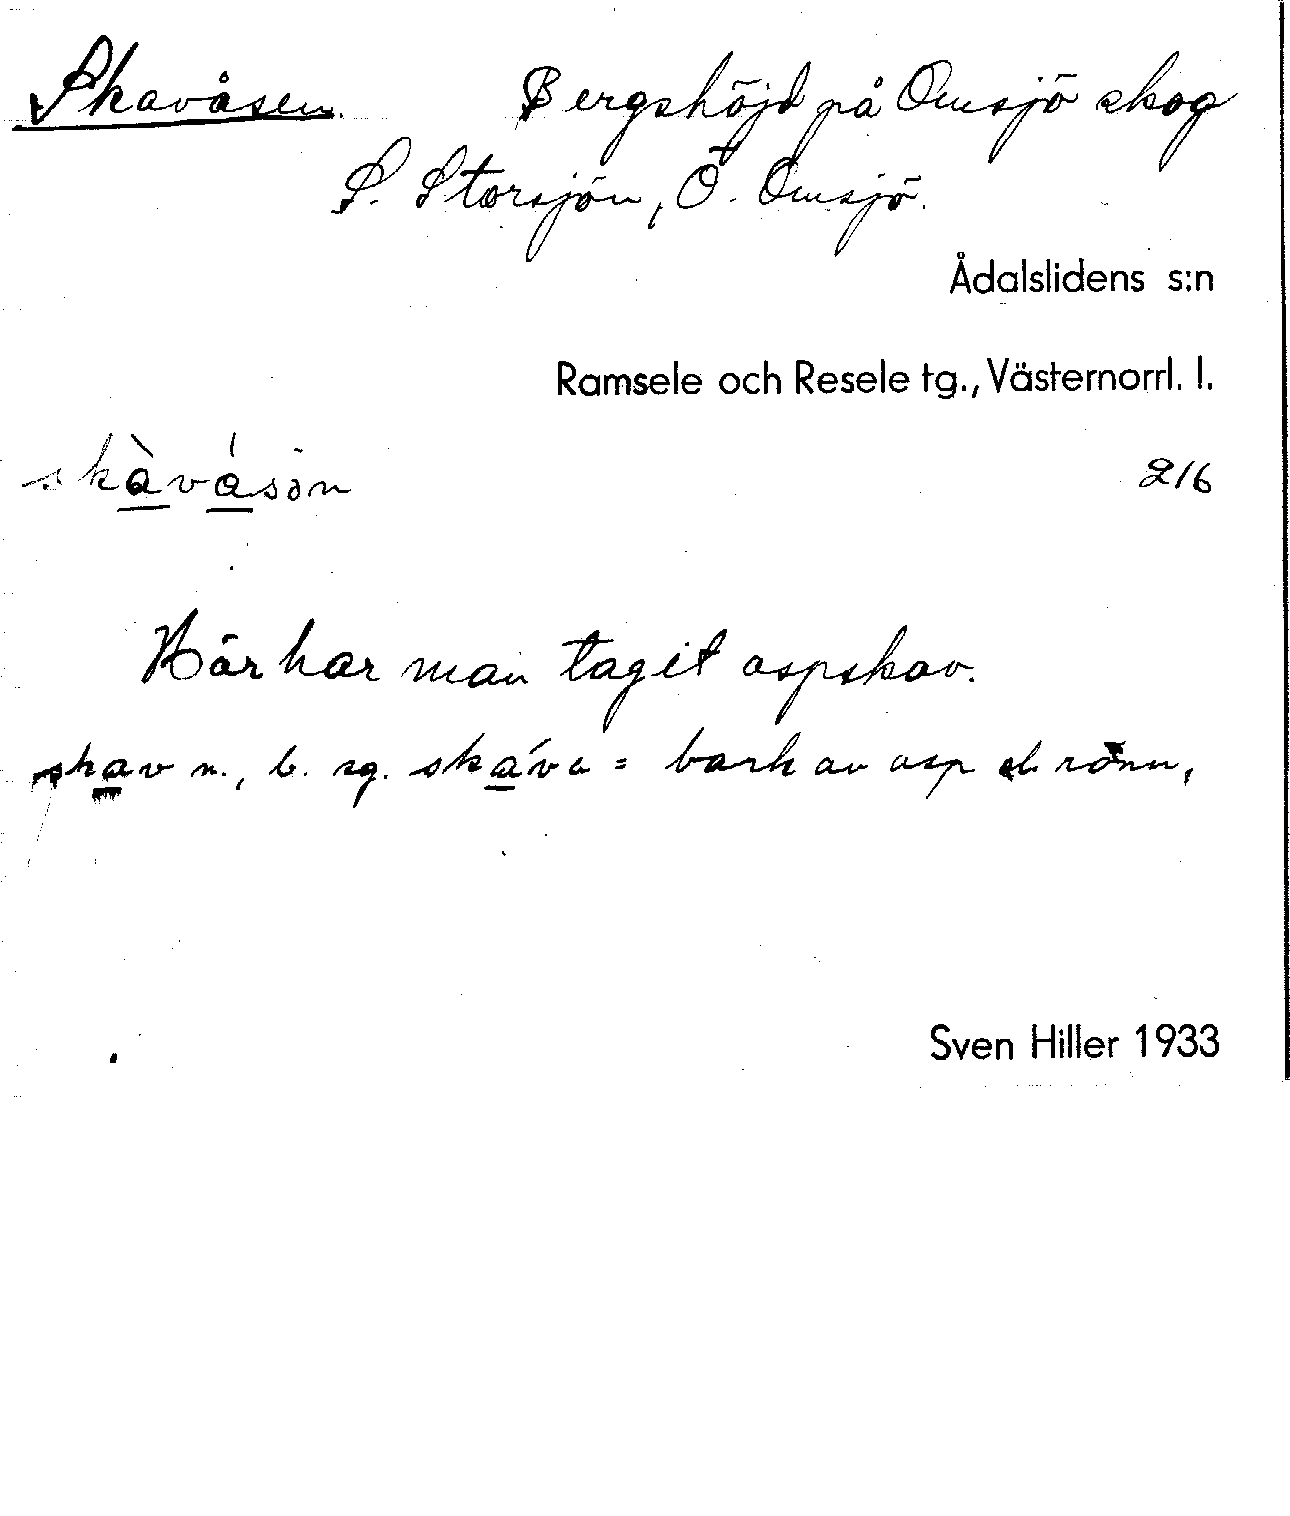 Skavåsen. Bergshöjd på Omsjö skog
S. Storsjön, Ö. Omsjö.
Ådalslidens s:n
Ramsele och Resele tg., Västernorrl. l.
skàvásön 216
Här har man tagit aspskav.
skav n., b. sg. skáva = bark av asp el. rönn,
Sven Hiller 1933